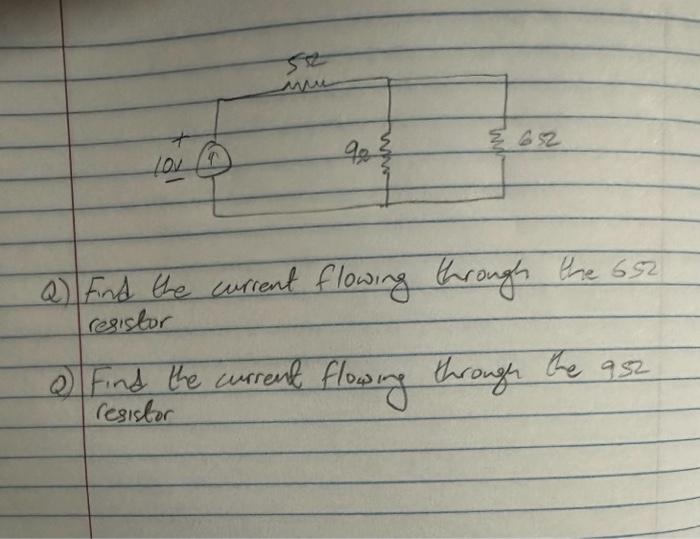 5Ω
+
10V
9Ω
6Ω
Q) Find the current flowing through the 6Ω
resistor
Q) Find the current flowing through the 9Ω
resistor